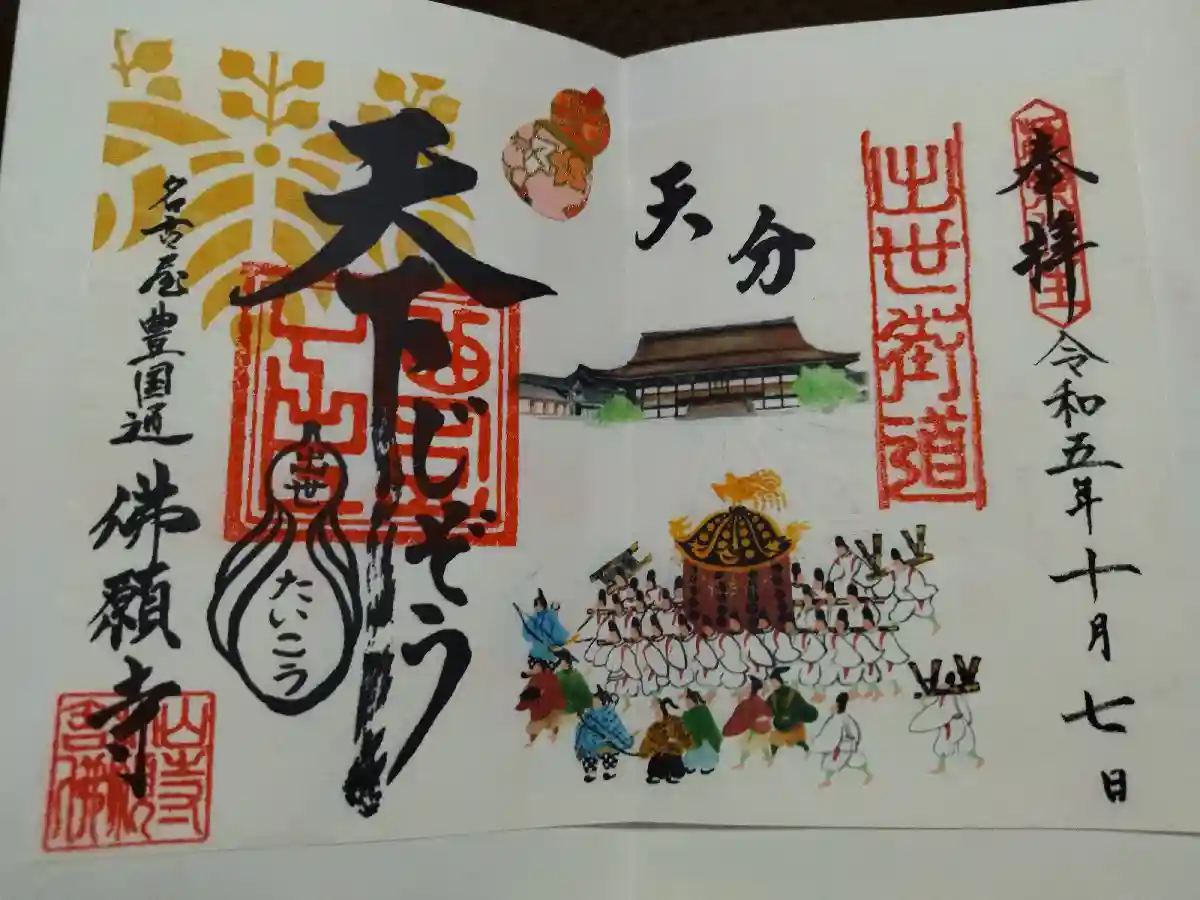 奉拝
令和五年十月七日
出世街道
天分
天下じぞう
出世
たいこう
名古屋豊国通
佛願寺